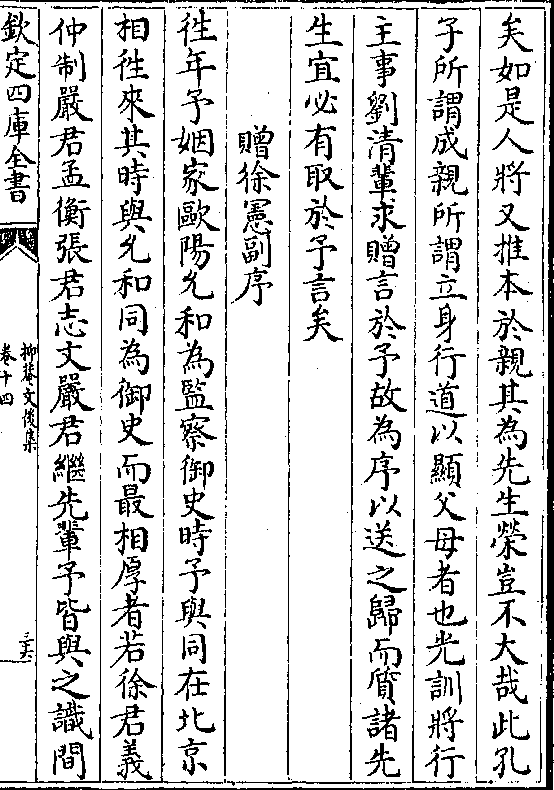 矣如是人將又推本於親其為先生榮豈不大哉此孔
子所謂成親所謂立身行道以顯父母者也光訓將行
主事劉清輩求贈言於予故為序以送之歸而質諸先
生宜必有取於予言矣
贈徐憲副序
往年予姻家歐陽允和為監察御史時予與同在北京
相徃來其時與允和同為御史而最相厚者若徐君義
仲制嚴君孟衡張君志文嚴君繼先輩予皆與之識間
欽定四庫全書
抑菴文後集
卷十四
三六